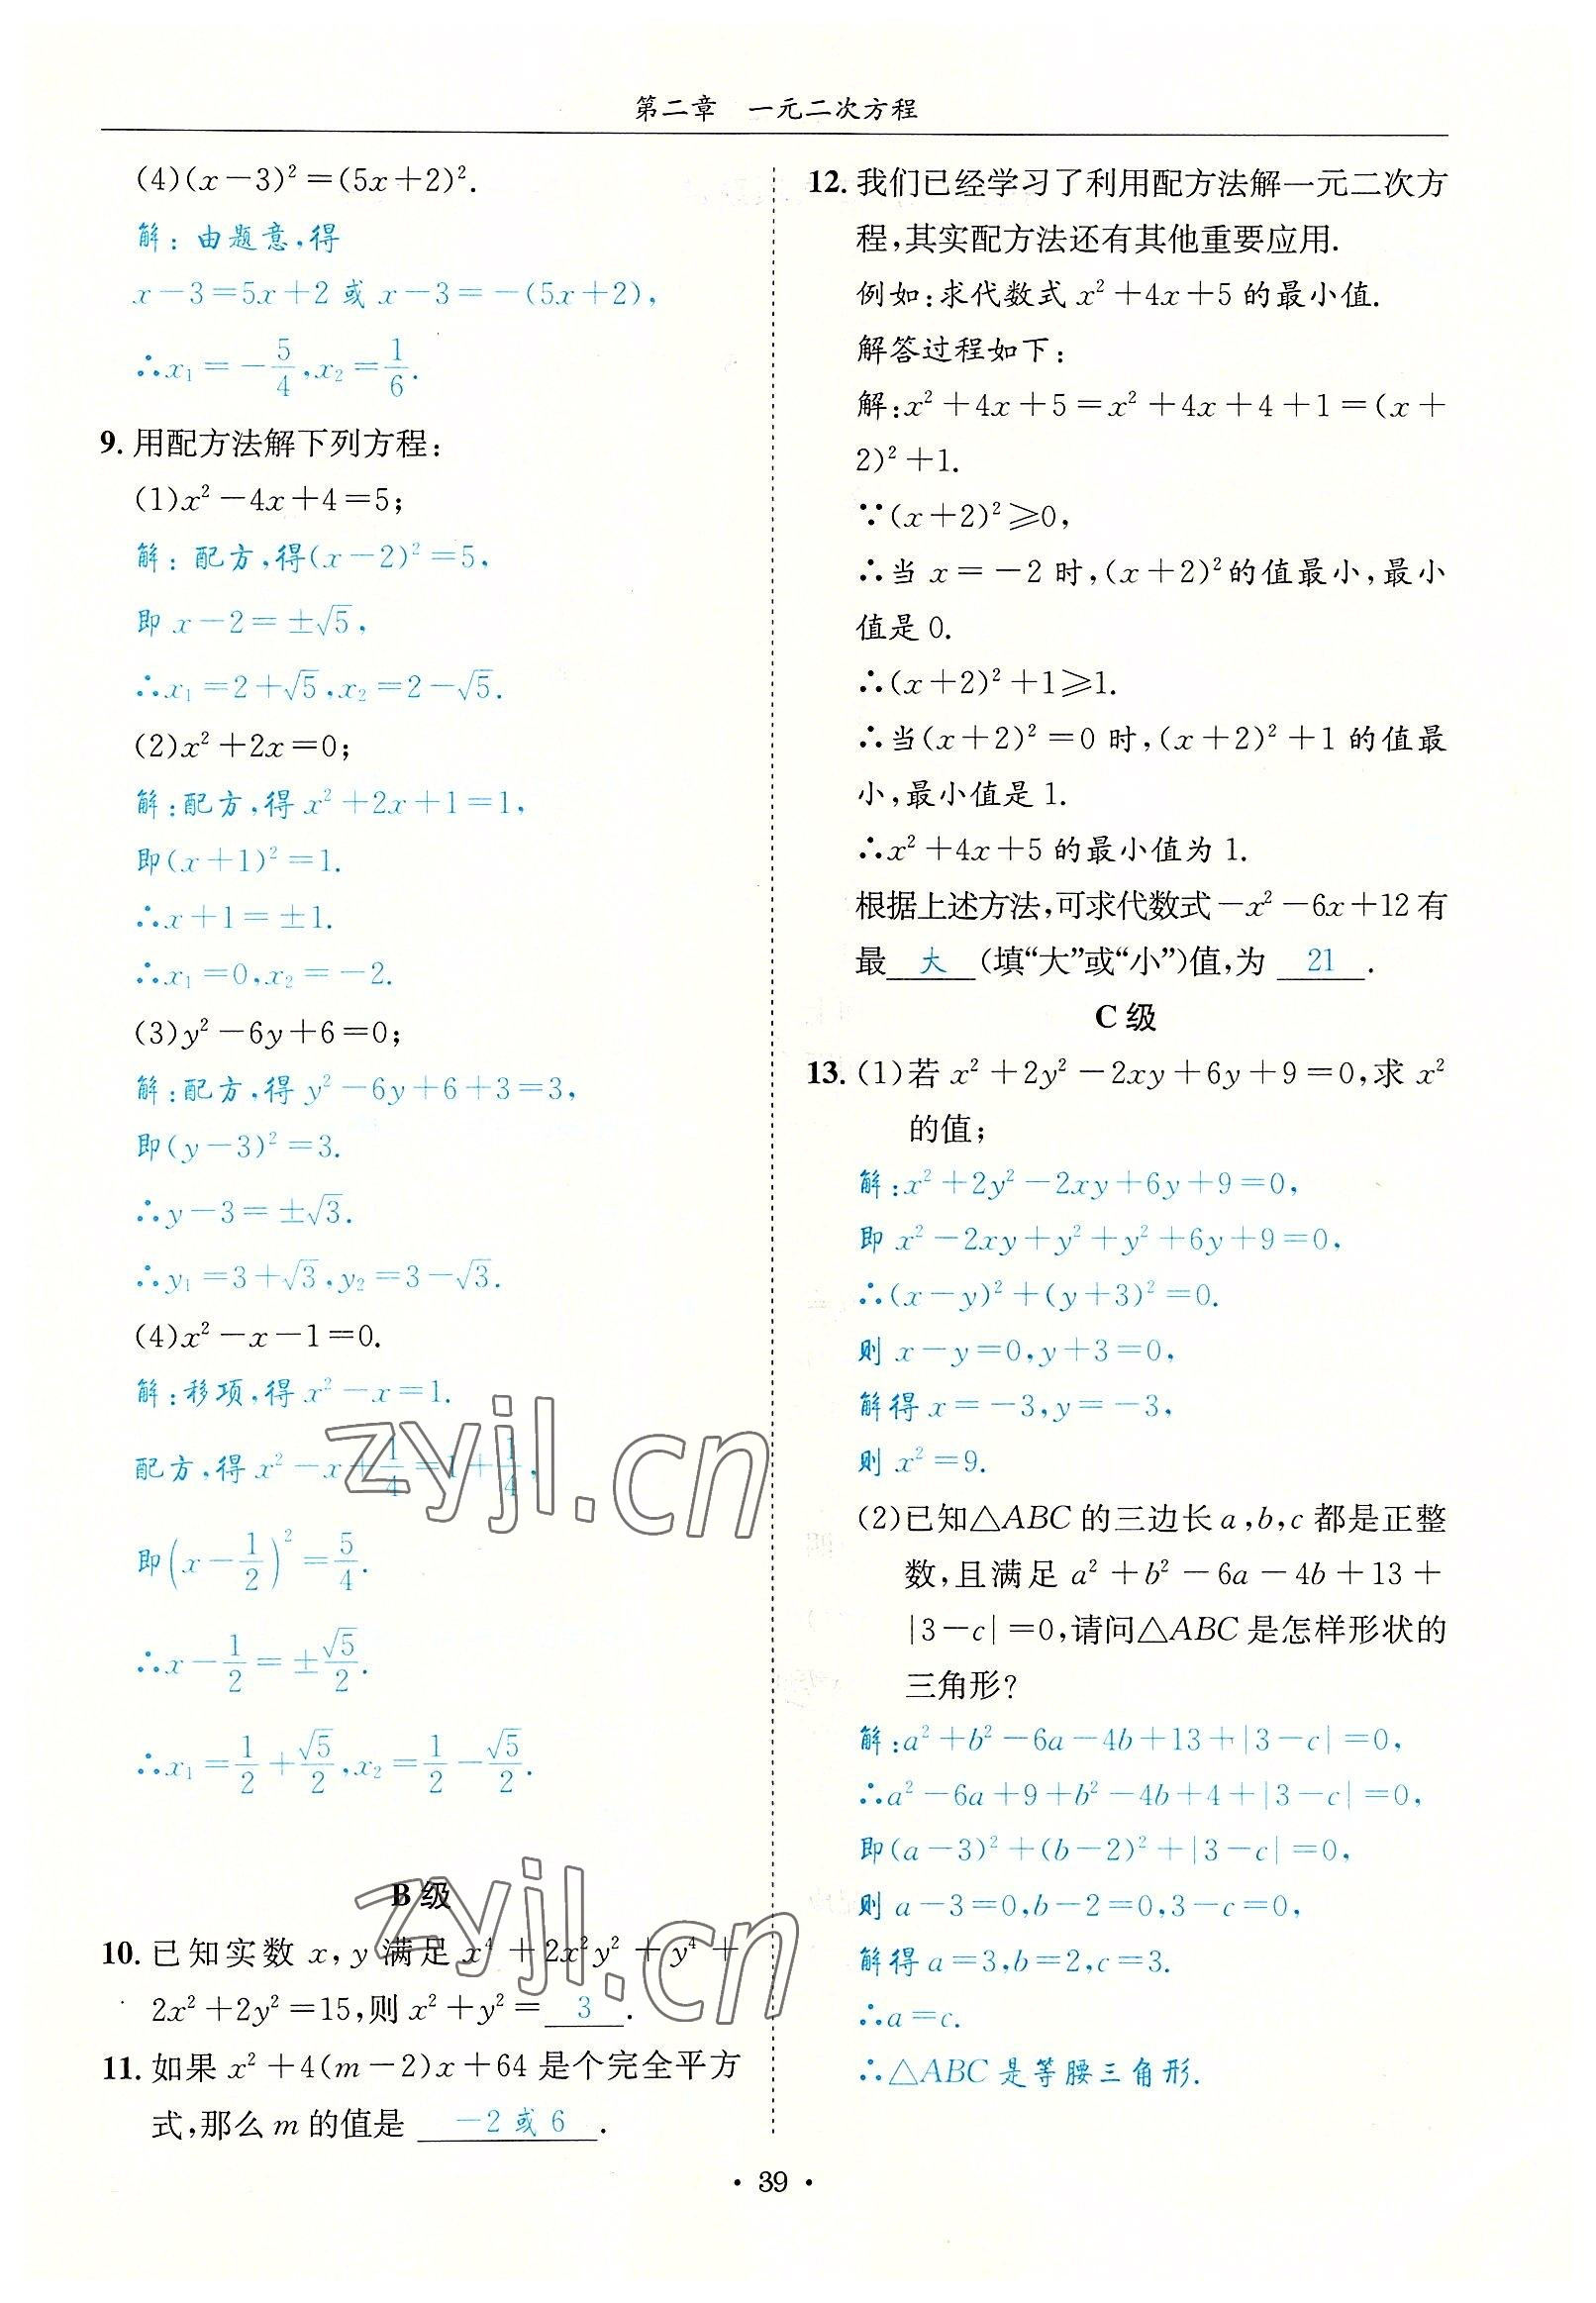 第二章　一元二次方程
(4)(x－3)²＝(5x＋2)².
解：由题意,得
x－3＝5x＋2或x－3＝－(5x＋2),
∴x₁＝－5/4,x₂＝1/6.
9. 用配方法解下列方程：
(1)x²－4x＋4＝5；
解：配方,得(x－2)²＝5,
即x－2＝±√5,
∴x₁＝2＋√5,x₂＝2－√5.
(2)x²＋2x＝0；
解：配方,得x²＋2x＋1＝1,
即(x＋1)²＝1.
∴x＋1＝±1.
∴x₁＝0,x₂＝－2.
(3)y²－6y＋6＝0；
解：配方,得y²－6y＋6＋3＝3,
即(y－3)²＝3.
∴y－3＝±√3.
∴y₁＝3＋√3,y₂＝3－√3.
(4)x²－x－1＝0.
解：移项,得x²－x＝1.
配方,得x²－x＋1/4＝1＋1/4,
即(x－1/2)²＝5/4.
∴x－1/2＝±√5/2.
∴x₁＝1/2＋√5/2,x₂＝1/2－√5/2.
B级
10. 已知实数x,y满足x⁴＋2x²y²＋y⁴＋
2x²＋2y²＝15,则x²＋y²＝ 3 .
11. 如果x²＋4(m－2)x＋64是个完全平方
式,那么m的值是 －2或6 .
12. 我们已经学习了利用配方法解一元二次方
程,其实配方法还有其他重要应用.
例如：求代数式x²＋4x＋5的最小值.
解答过程如下：
解：x²＋4x＋5＝x²＋4x＋4＋1＝(x＋
2)²＋1.
∵(x＋2)²≥0,
∴当x＝－2时,(x＋2)²的值最小,最小
值是0.
∴(x＋2)²＋1≥1.
∴当(x＋2)²＝0时,(x＋2)²＋1的值最
小,最小值是1.
∴x²＋4x＋5的最小值为1.
根据上述方法,可求代数式－x²－6x＋12有
最 大 (填“大”或“小”)值,为 21 .
C级
13. (1)若x²＋2y²－2xy＋6y＋9＝0,求x²
的值；
解：x²＋2y²－2xy＋6y＋9＝0,
即x²－2xy＋y²＋y²＋6y＋9＝0,
∴(x－y)²＋(y＋3)²＝0.
则x－y＝0,y＋3＝0,
解得x＝－3,y＝－3,
则x²＝9.
(2)已知△ABC的三边长a,b,c都是正整
数,且满足a²＋b²－6a－4b＋13＋
|3－c|＝0,请问△ABC是怎样形状的
三角形?
解：a²＋b²－6a－4b＋13＋|3－c|＝0,
∴a²－6a＋9＋b²－4b＋4＋|3－c|＝0,
即(a－3)²＋(b－2)²＋|3－c|＝0,
则a－3＝0,b－2＝0,3－c＝0,
解得a＝3,b＝2,c＝3.
∴a＝c.
∴△ABC是等腰三角形.
zyjl.cn
zyjl.cn
· 39 ·